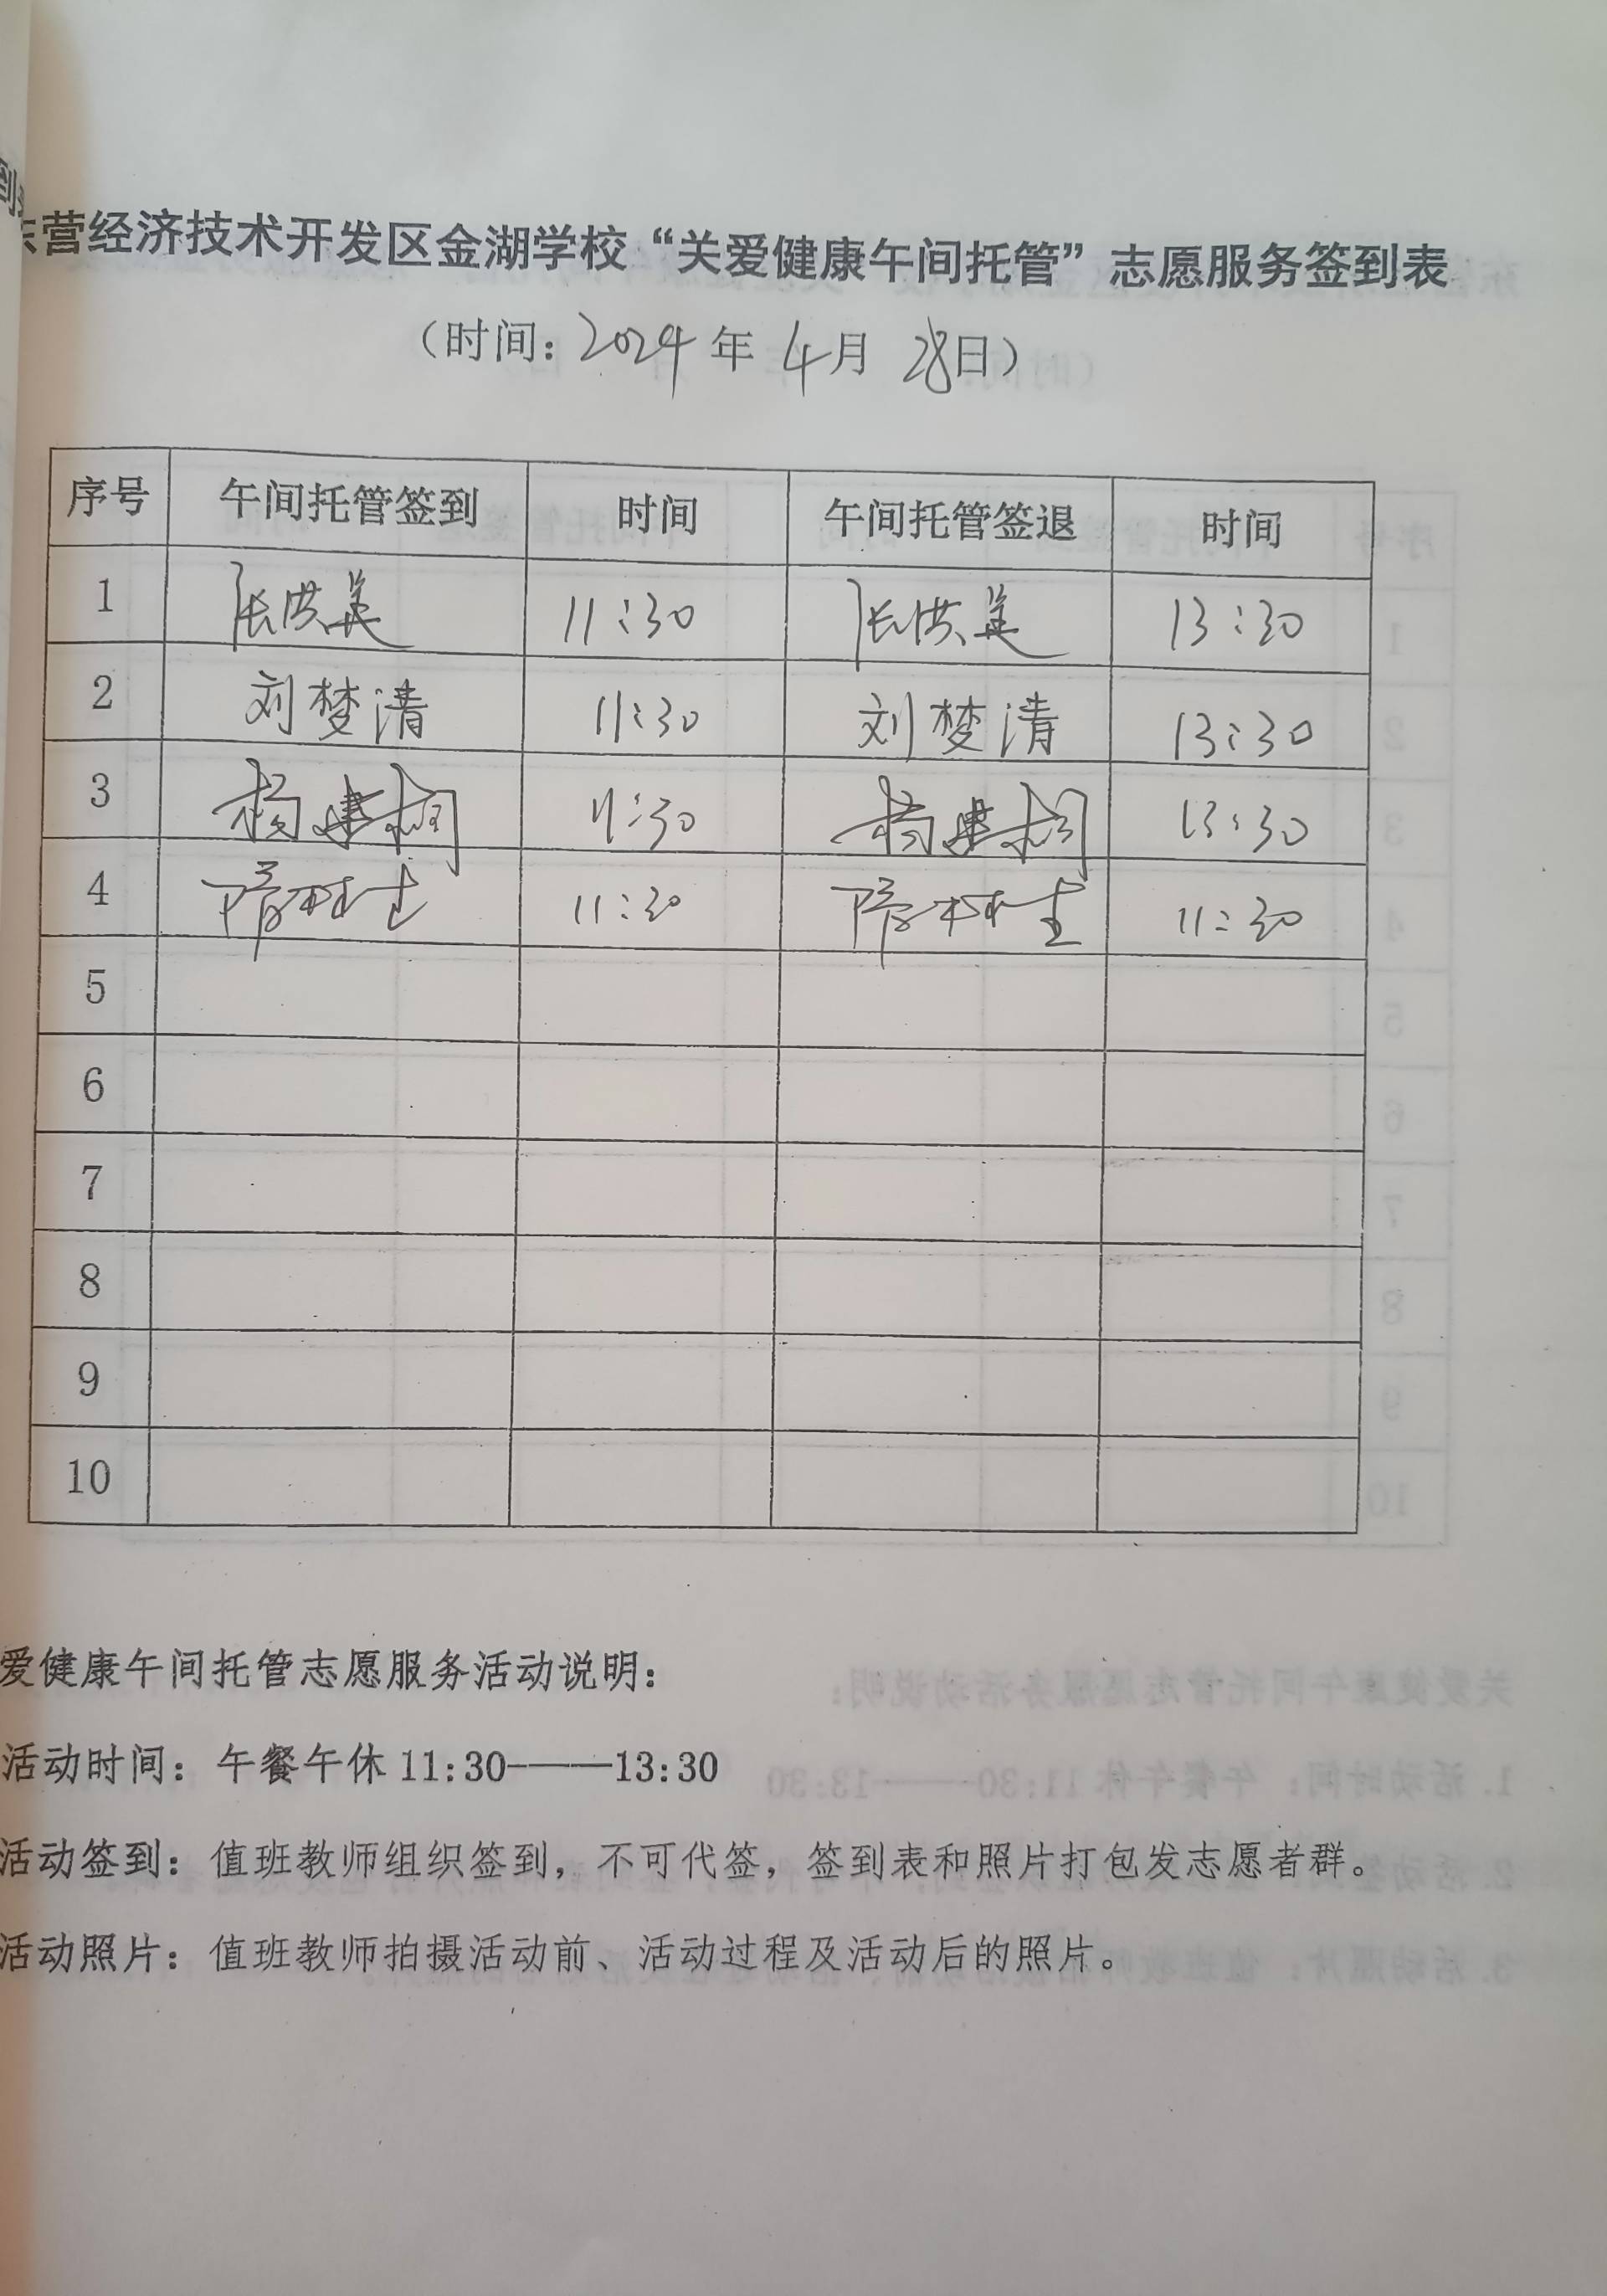 营经济技术开发区金湖学校“关爱健康午间托管”志愿服务签到表
(时间:2024年4月28日)
序号 午间托管签到 时间 午间托管签退 时间
1 张洪美 11:30 张洪美 13:30
2 刘梦清 11:30 刘梦清 13:30
3 杨建桐 11:30 杨建桐 13:30
4 11:30 11:30
5
6
7
8
9
10
爱健康午间托管志愿服务活动说明:
活动时间:午餐午休 11:30——13:30
活动签到:值班教师组织签到,不可代签,签到表和照片打包发志愿者群。
活动照片:值班教师拍摄活动前、活动过程及活动后的照片。